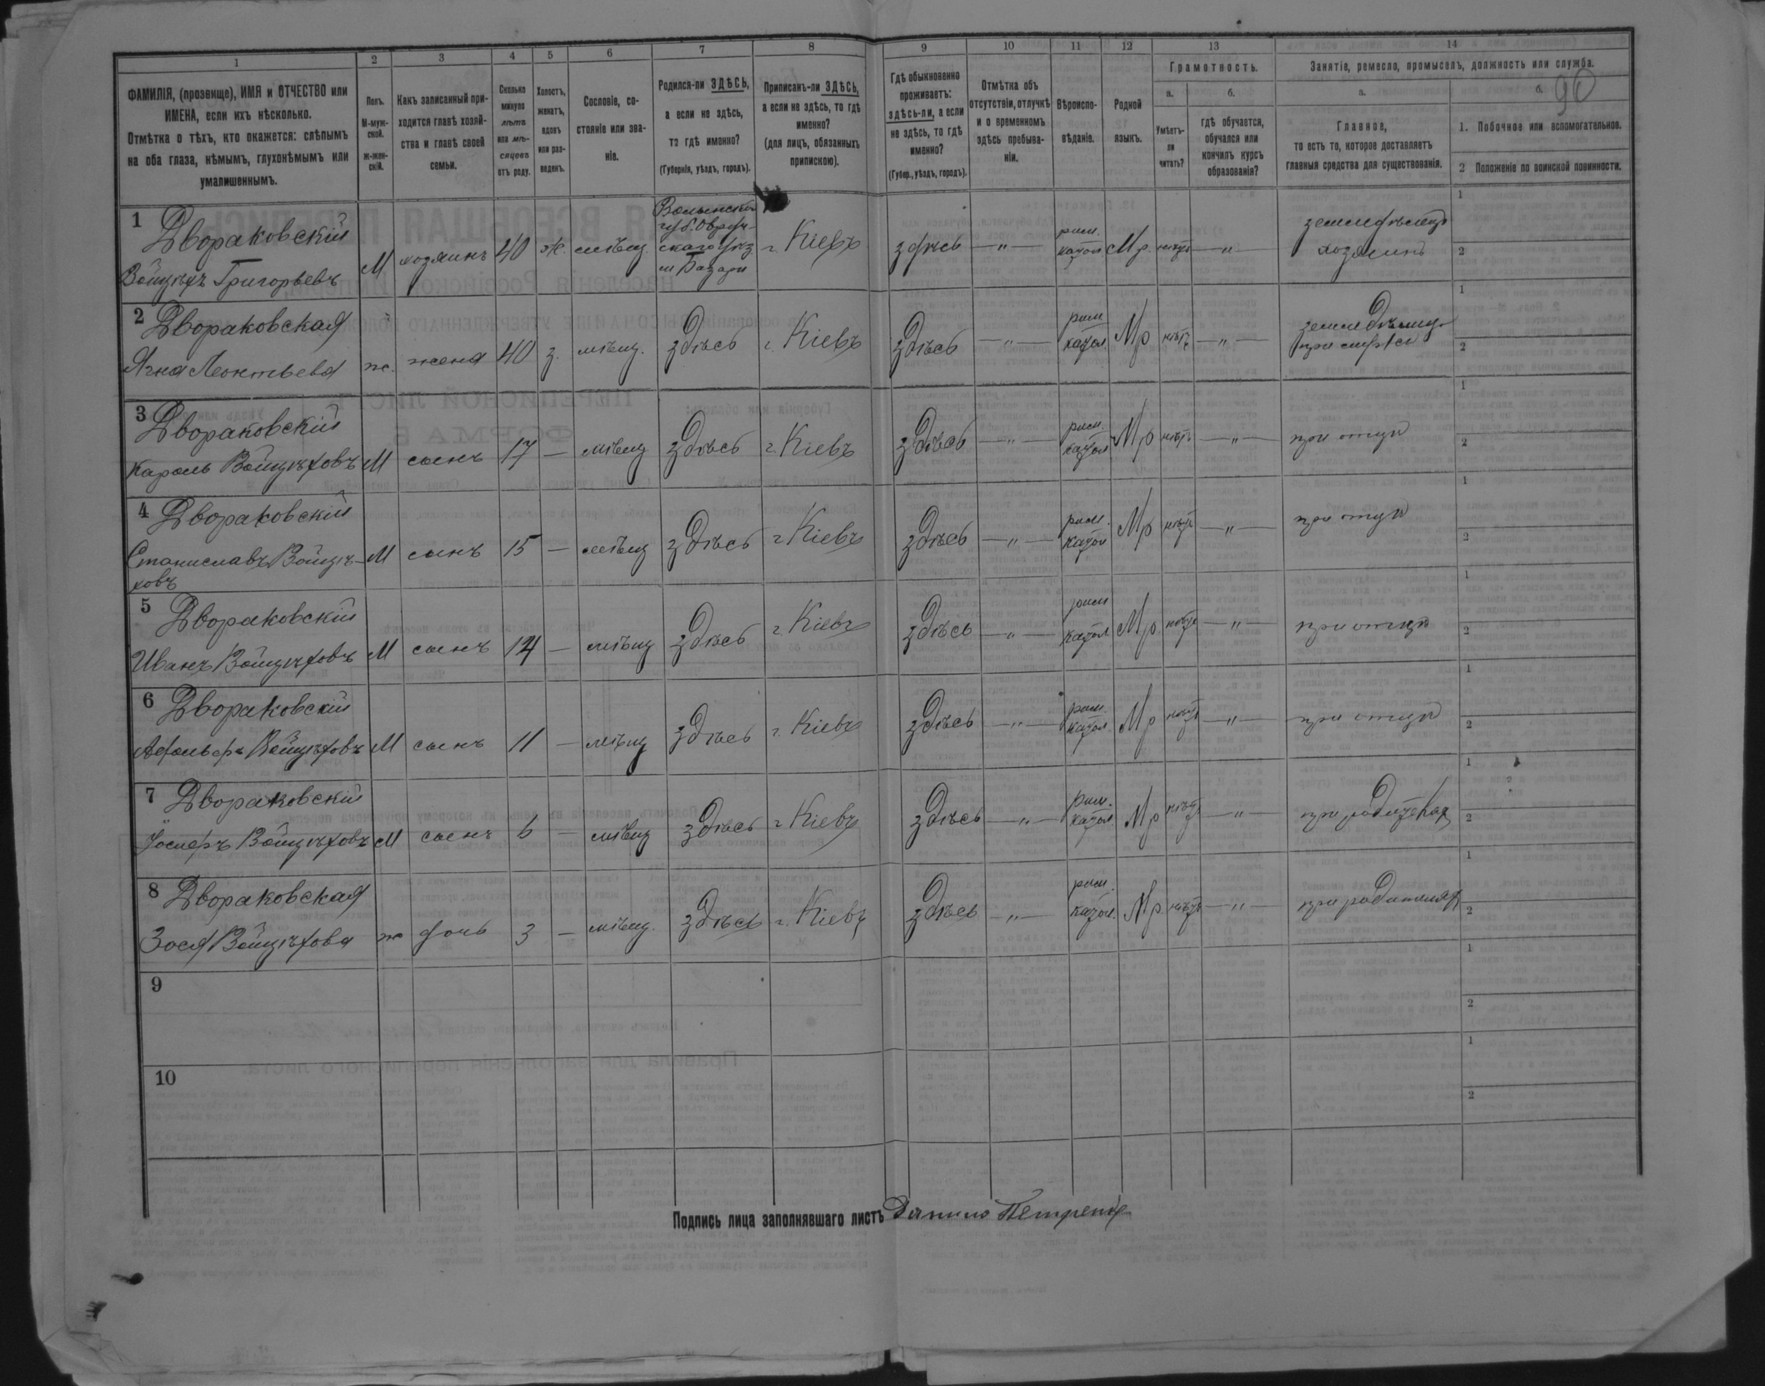 90
1 2 3 4 5 6 7 8 9 10 11 12 13 14
ФАМИЛІЯ, (прозвище), ИМЯ и ОТЧЕСТВО или ИМЕНА, если ихъ нѣсколько.
Отмѣтка о тѣхъ, кто окажется: слѣпымъ на оба глаза, нѣмымъ, глухонѣмымъ или умалишеннымъ.
Полъ.
М-муж-
ской.
ж-жен-
скій.
Какъ записанный при-
ходится главѣ хозяй-
ства и главѣ своей
семьи.
Сколько
минуло
лѣтъ
или мѣ-
сяцевъ
отъ роду.
Холостъ,
женатъ,
вдовъ
или раз-
веденъ.
Сословіе, со-
стояніе или зва-
ніе.
Родился-ли ЗДѢСЬ,
а если не здѣсь,
то гдѣ именно?
(Губернія, уѣздъ, городъ).
Приписанъ-ли ЗДѢСЬ,
а если не здѣсь, то гдѣ
именно?
(для лицъ, обязанныхъ
припискою).
Гдѣ обыкновенно
проживаетъ:
здѣсь-ли, а если
не здѣсь, то гдѣ
именно?
(Губер., уѣздъ, городъ).
Отмѣтка объ
отсутствіи, отлучкѣ
и о временномъ
здѣсь пребыва-
ніи.
Вѣроиспо-
вѣданіе.
Родной
языкъ.
Грамотность.
а. б.
Умѣетъ-
ли
читать?
гдѣ обучается,
обучался или
кончилъ курсъ
образованія?
Занятіе, ремесло, промыселъ, должность или служба.
а. б.
Главное,
то есть то, которое доставляетъ
главныя средства для существованія.
1. Побочное или вспомогательное.
2 Положеніе по воинской повинности.
1 Двораковскій
Войцѣхъ Григорьевъ М хозяинъ 40 ж. мѣщ. Волынской
губ. Овруч-
скаго уѣз
м Базары г. Кіевъ здѣсь —"— рим.
катол Мр нѣтъ —"— земледѣлецъ
хозяинъ 1 2
2 Двораковская
Анна Леонтьева ж. жена 40 з. мѣщ. здѣсь г. Кіевъ здѣсь —"— рим
катол Мр нѣтъ —"— земледѣлица
при мужѣ 1 2
3 Двораковскій
Кароль Войцѣховъ М сынъ 17 — мѣщ здѣсь г. Кіевъ здѣсь —"— рим.
катол Мр нѣтъ —"— при отцѣ 1 2
4 Двораковскій
Станиславъ Войцѣ-
ховъ М сынъ 15 — мѣщ здѣсь г. Кіевъ здѣсь —"— рим.
катол Мр нѣтъ —"— при отцѣ 1 2
5 Двораковскій
Иванъ Войцѣховъ М сынъ 14 — мѣщ здѣсь г. Кіевъ здѣсь —"— рим
катол Мр нѣтъ —"— при отцѣ 1 2
6 Двораковскій
Адольфъ Войцѣховъ М сынъ 11 — мѣщ здѣсь г. Кіевъ здѣсь —"— рим.
катол. Мр нѣтъ —"— при отцѣ 1 2
7 Двораковскій
Войцѣховъ М сынъ 6 — мѣщ здѣсь г. Кіевъ здѣсь —"— рим.
катол Мр нѣтъ —"— при родителяхъ 1 2
8 Двораковская
Зося Войцѣхова ж дочь 3 — мѣщ. здѣсь г. Кіевъ здѣсь —"— рим.
катол. Мр нѣтъ —"— при родителяхъ 1 2
9 1 2
10 1 2
Подпись лица заполнявшаго листъ Данило Петренко